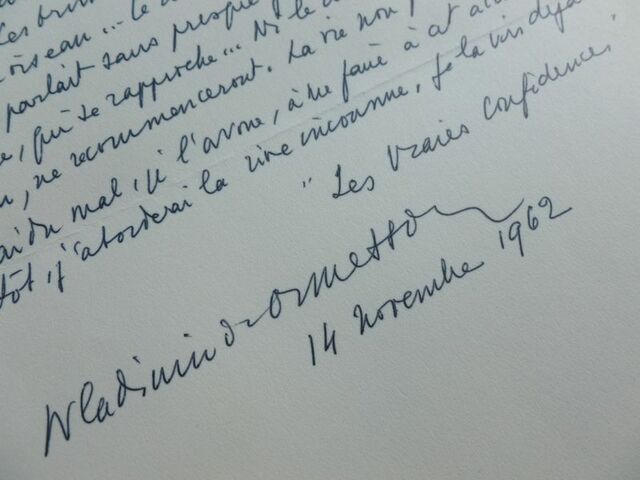 Les
oiseau... Le
parlait sans presque
, qui se rapproche... Ni le
, ne recommenceront. La vie non
du mal, je l'avoue, à me faire à cet
tôt, j'aborderai la rive inconnue, je la vois déjà
"Les Vraies Confidences.
Wladimir d'Ormesson
14 novembre 1962